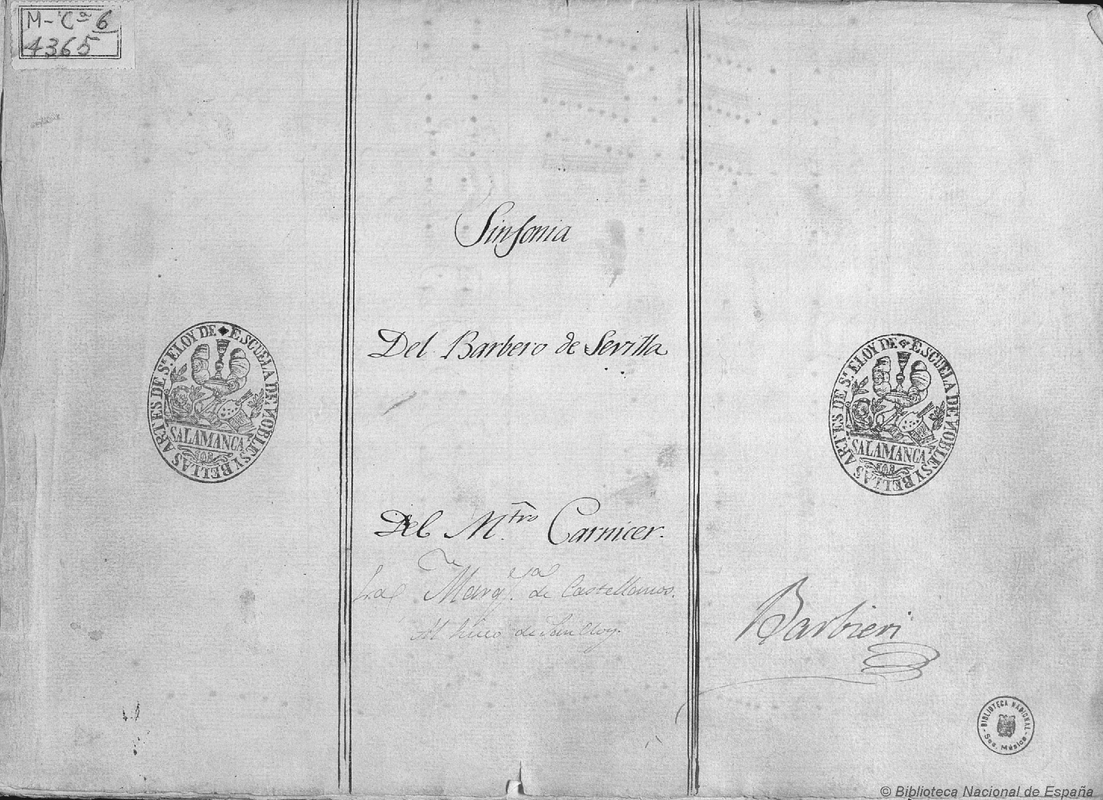 M-Cª 6
4365
Sinfonia
Del Barbero de Sevilla
ESCUELA DE NOBLES Y BELLAS ARTES DE Sⁿ ELOY DE
SALAMANCA
ESCUELA DE NOBLES Y BELLAS ARTES DE Sⁿ ELOY DE
SALAMANCA
Del M.tro Carnicer.
La Marq.sa de Castellanos.
de San Eloy.
Barbieri
BIBLIOTECA NACIONAL
Sec. Música
© Biblioteca Nacional de España